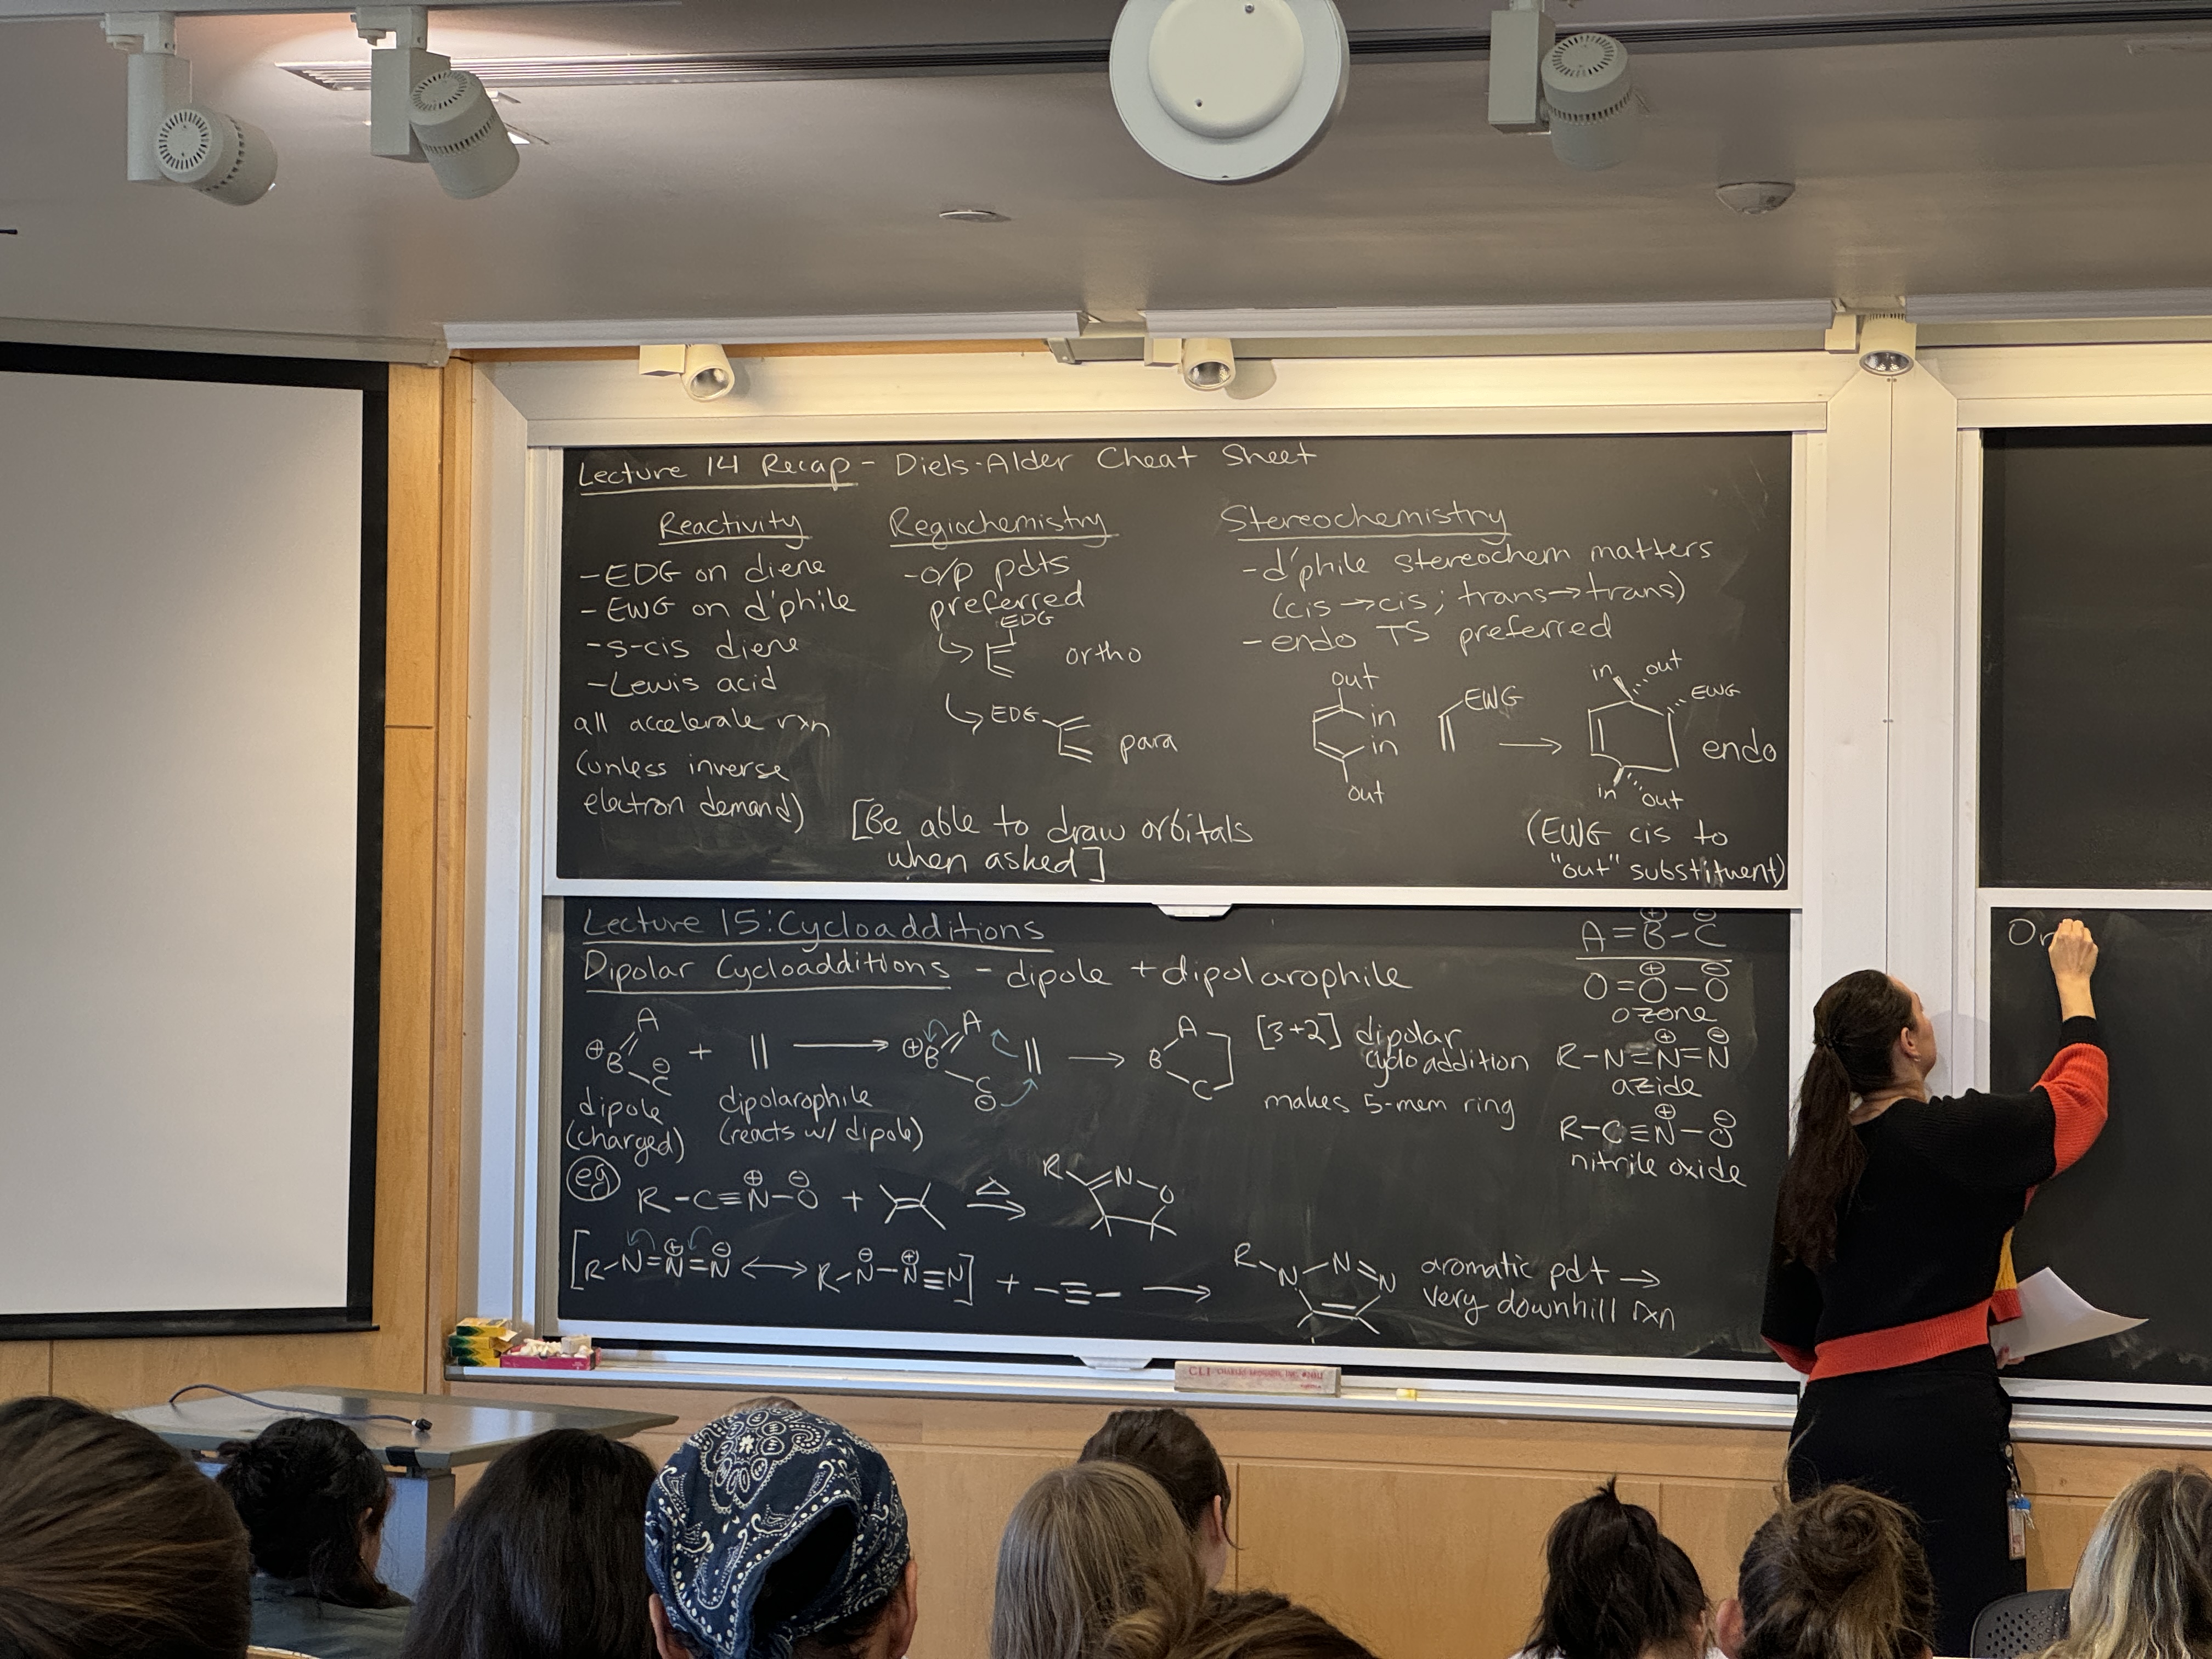 Lecture 14 Recap - Diels-Alder Cheat Sheet
Reactivity
- EDG on diene
- EWG on d'phile
- s-cis diene
- Lewis acid
all accelerate rxn
(unless inverse
electron demand)
Regiochemistry
- o/p pdts
preferred
EDG
ortho
EDG
para
[Be able to draw orbitals
when asked]
Stereochemistry
- d'phile stereochem matters
(cis → cis; trans → trans)
- endo TS preferred
out
in
in
out
EWG
in out
EWG
endo
in out
(EWG cis to
"out" substituent)
Lecture 15: Cycloadditions
Dipolar Cycloadditions - dipole + dipolarophile
A
⊕B
⊖
C
+
dipole
(charged)
dipolarophile
(reacts w/ dipole)
A
⊕B
C
⊖
A
B
C
[3+2] dipolar
cycloaddition
makes 5-mem ring
⊕ ⊖
A=B-C
⊕ ⊖
O=O-O
ozone
⊕ ⊖
R-N=N=N
azide
⊕ ⊖
R-C≡N-O
nitrile oxide
eg
⊕ ⊖
R-C≡N-O + Δ
R N-O
⊕ ⊖ ⊖ ⊕
[R-N=N=N ↔ R-N-N≡N] + -≡- →
R N-N=N
aromatic pdt →
very downhill rxn
Or